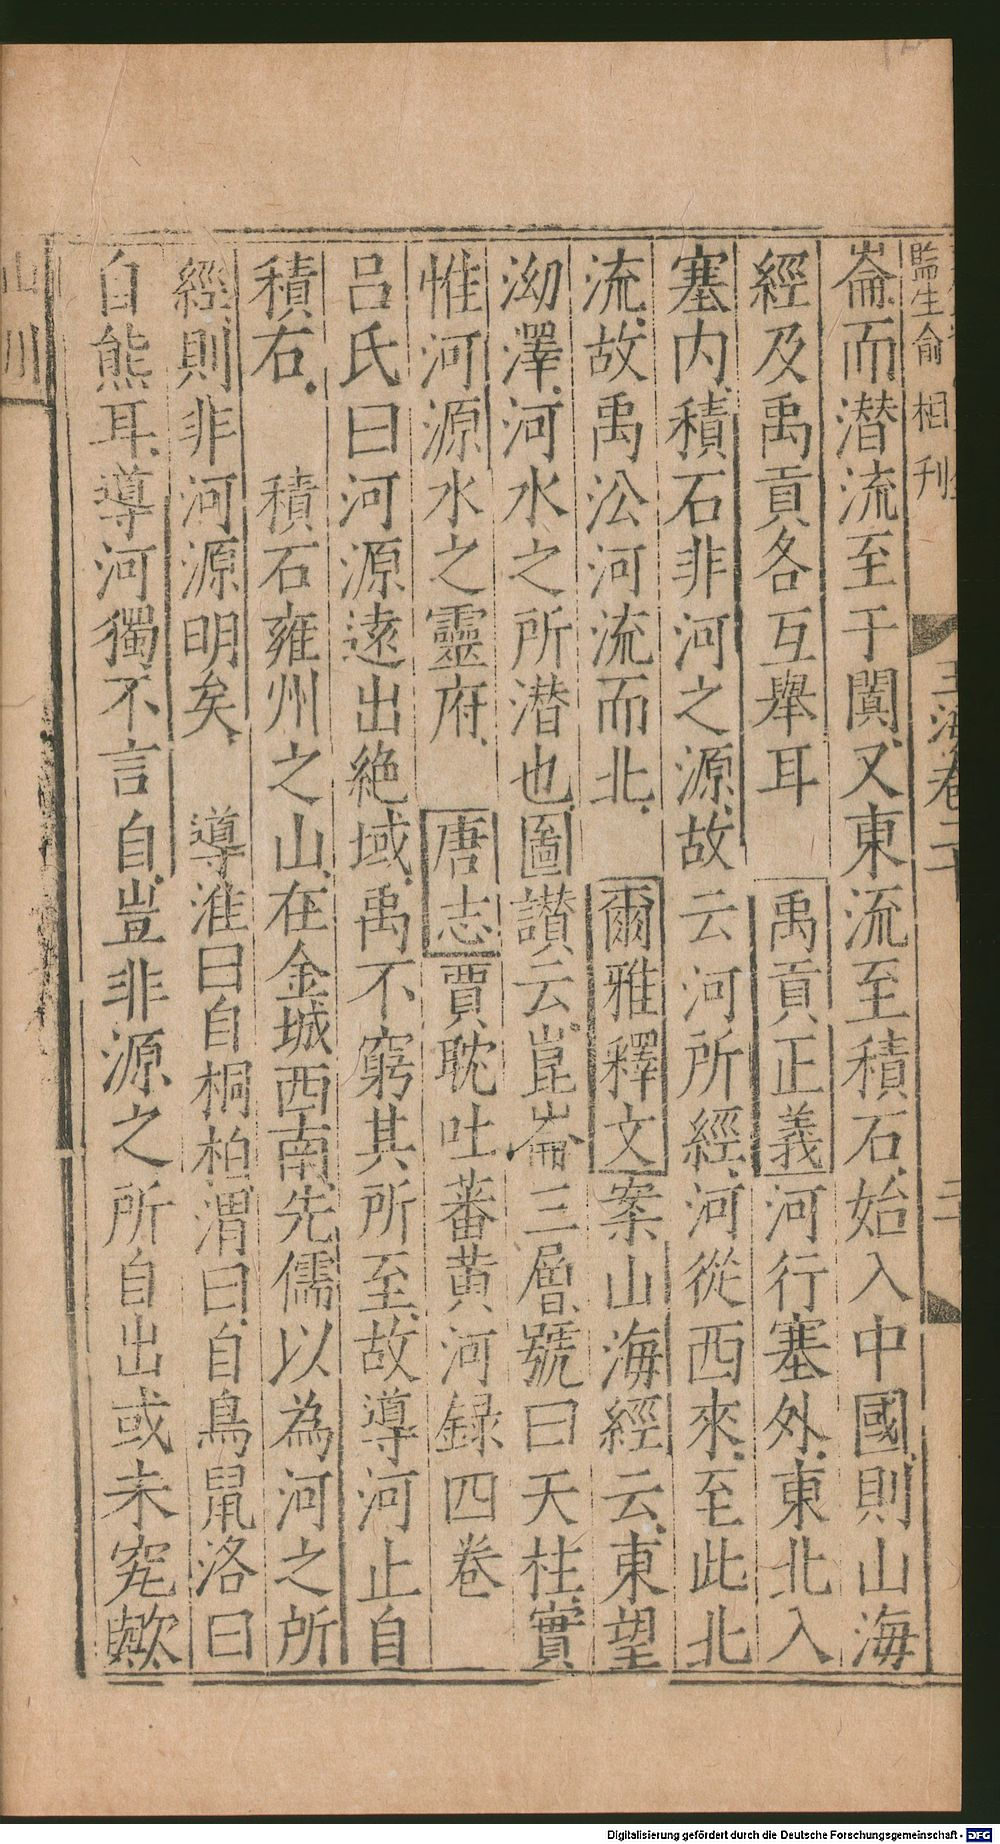 監生俞相刊
玉海卷二十
二十
崙而潜流至于闐又東流至積石始入中國則山海
經及禹貢各互舉耳 禹貢正義河行塞外東北入
塞内積石非河之源故云河所經河從西來至此北
流故禹㳂河流而北 爾雅釋文案山海經云東望
泑澤河水之所潜也圖讃云崑崙三層號曰天柱實
惟河源水之靈府 唐志賈耽吐蕃黄河録四卷
吕氏曰河源逺出絶域禹不窮其所至故導河止自
積石 積石雍州之山在金城西南先儒以為河之所
經則非河源明矣 導淮曰自桐柏渭曰自鳥鼠洛曰
自熊耳導河獨不言自豈非源之所自出或未究歟
山川
Digitalisierung gefördert durch die Deutsche Forschungsgemeinschaft - DFG